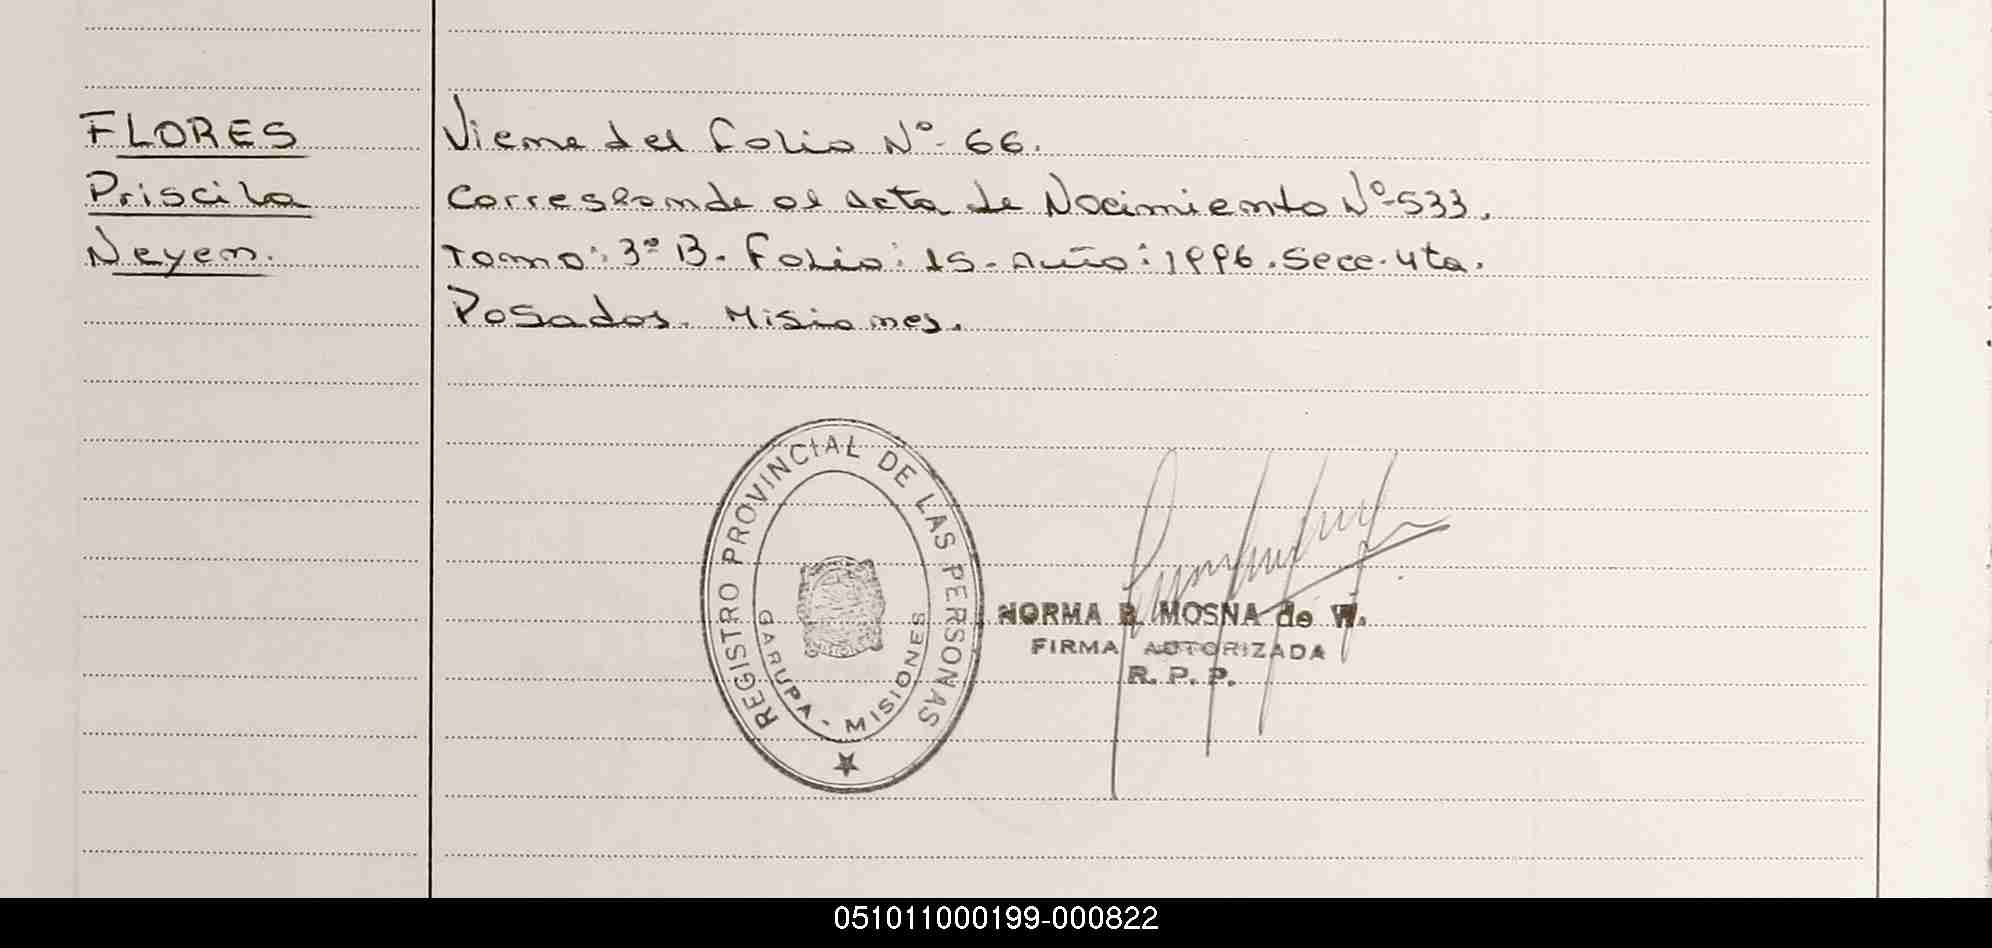 FLORES
Priscila
Neyen.
Viene del folio Nº. 66.
Corresponde al acta de Nacimiento Nº 533.
Tomo: 3º B. Folio: 15. Año: 1996. Secc. 4ta.
Posadas. Misiones.
REGISTRO PROVINCIAL DE LAS PERSONAS
GARUPA - MISIONES
NORMA B. MOSNA de W.
FIRMA AUTORIZADA
R. P. P.
051011000199-000822